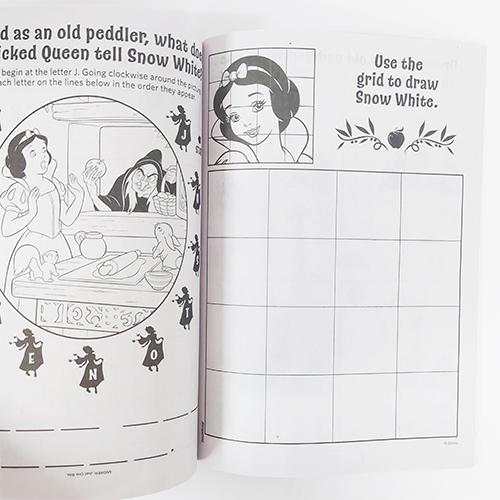 d as an old peddler, what does
icked Queen tell Snow White?
begin at the letter J. Going clockwise around the picture,
ach letter on the lines below in the order they appear.
J
T
O
N
E
ANSWER: Just One Bite.
Use the
grid to draw
Snow White.
© Disney